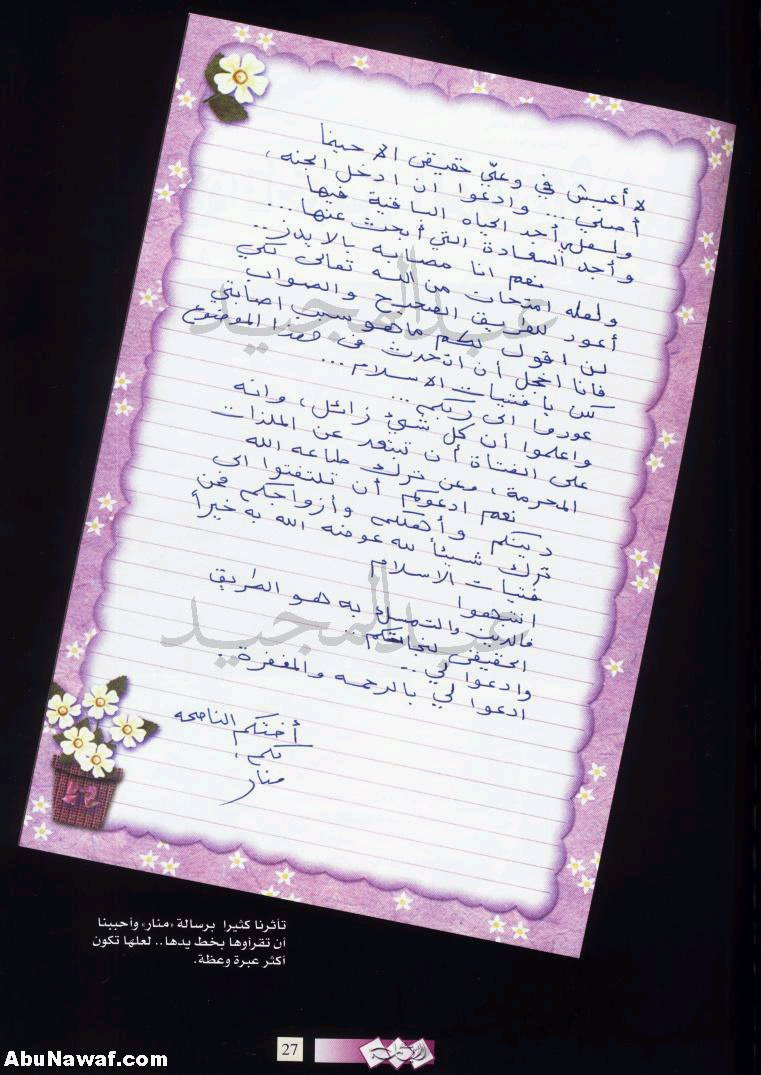 لا أعيش في وعيي حقيقي الا حينما
أصلي ... وادعوا ان ادخل الجنه ،
ولعلي أجد الحياه الباقية فيها
وأجد السعادة التي أبحث عنها ...
نعم انا مصابه بالايدز ..
ولعله امتحان من الله تعالى لكي
أعود للطريق الصحيح والصواب
لن اقول لكم ماهو سبب اصابتي
فأنا اخجل أن اتحدث في هذا الموضوع
لكن يا فتيات الاسلام ...
عودوا الى ربكم ...
واعلموا أن كل شيئ زائل ، وانه
على الفتاة أن تبتعد عن الملذات
المحرمة ، وعن ترك طاعه الله
نعم ادعوكم أن تلتفتوا الى
دينكم وأهلكم وأزواجكم فمن
ترك شيئاً لله عوضه الله به خيراً
فتيات الاسلام
انتبهوا
فالدين والتمسك به هو الطريق
الحقيقي لنجاتكم ..
وادعوا لي ..
ادعوا لي بالرحمه والمغفرة .
أختكم الناصحه
لكم ،
منار
عبدالمجيد
عبدالمجيد
تأثرنا كثيرا برسالة «منار» وأحببنا
أن تقرأوها بخط يدها .. لعلها تكون
أكثر عبرة وعظة.
27
AbuNawaf.com